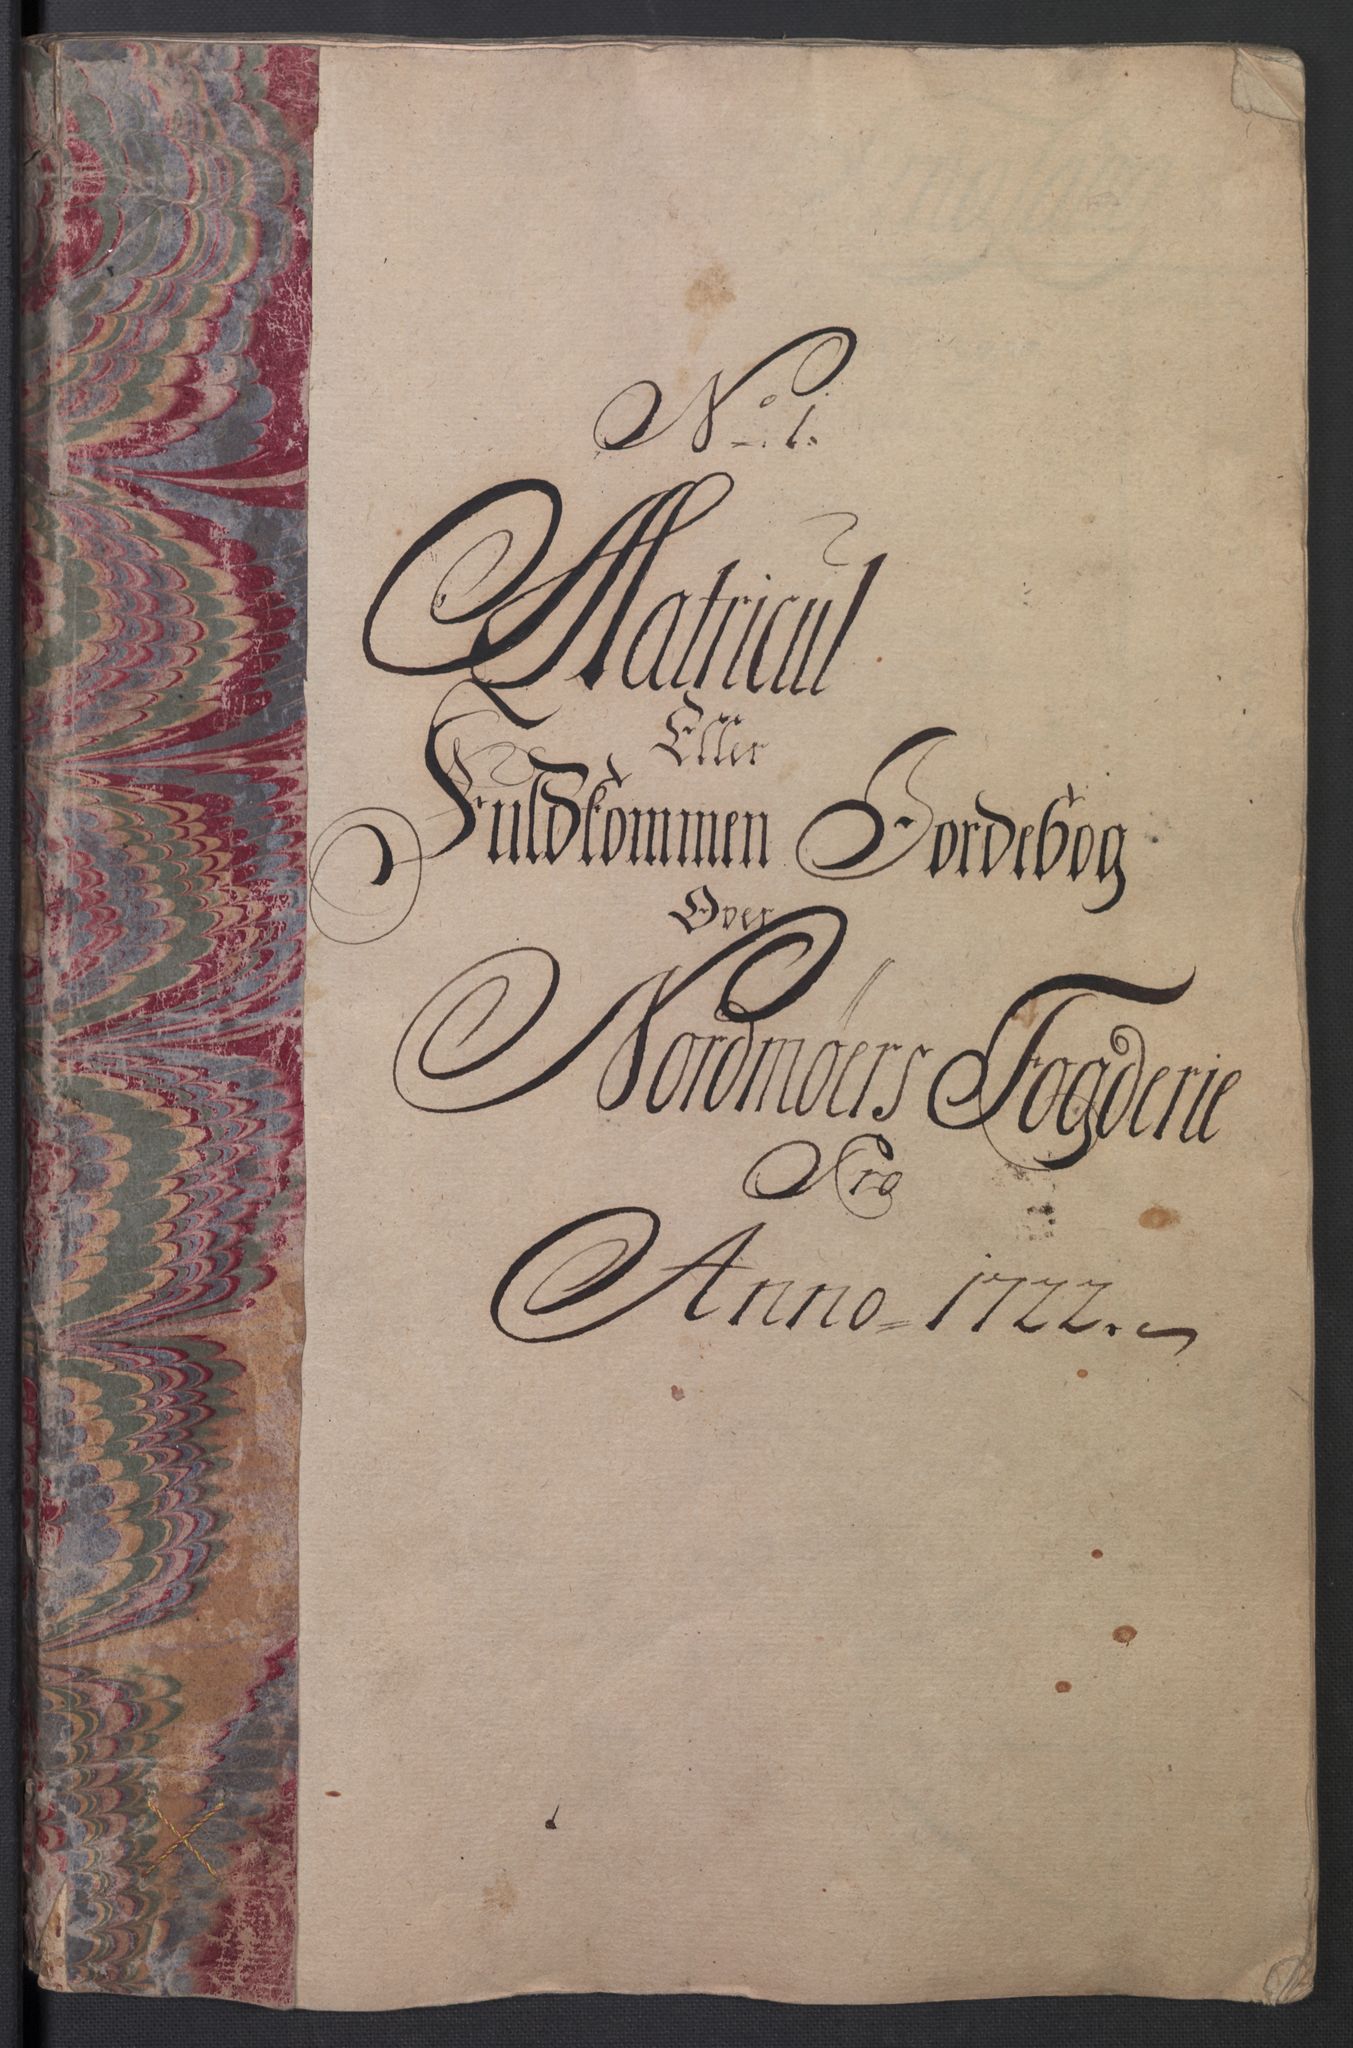 No. 1.
Matricul
Eller
Fuldkommen Jordebog
Over
Nordmøers Fogderie
Pro
Anno = 1722.